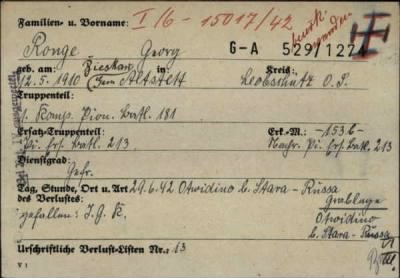 Familien- u. Vorname: I/6 - 15017/42
Ronge Georg G-A 529/1224
geb. am: in: Kreis:
12.5.1910 Altstett Leobschütz O.S.
Truppenteil:
1. Komp. Pion. Batl. 181
Ersatz-Truppenteil: Erk.-M.: -1536-
Pi. Ers. Batl. 213 Nachr. Pi. Ers. Batl. 213
Dienstgrad:
Gefr.
Tag, Stunde, Ort u. Art 29.6.42 Otwidino b. Stara-Russa
des Verlustes: Grablage
gefallen: I.G.K. Otwidino
b. Stara-Russa
Urschriftliche Verlust-Listen Nr. 13
V 1